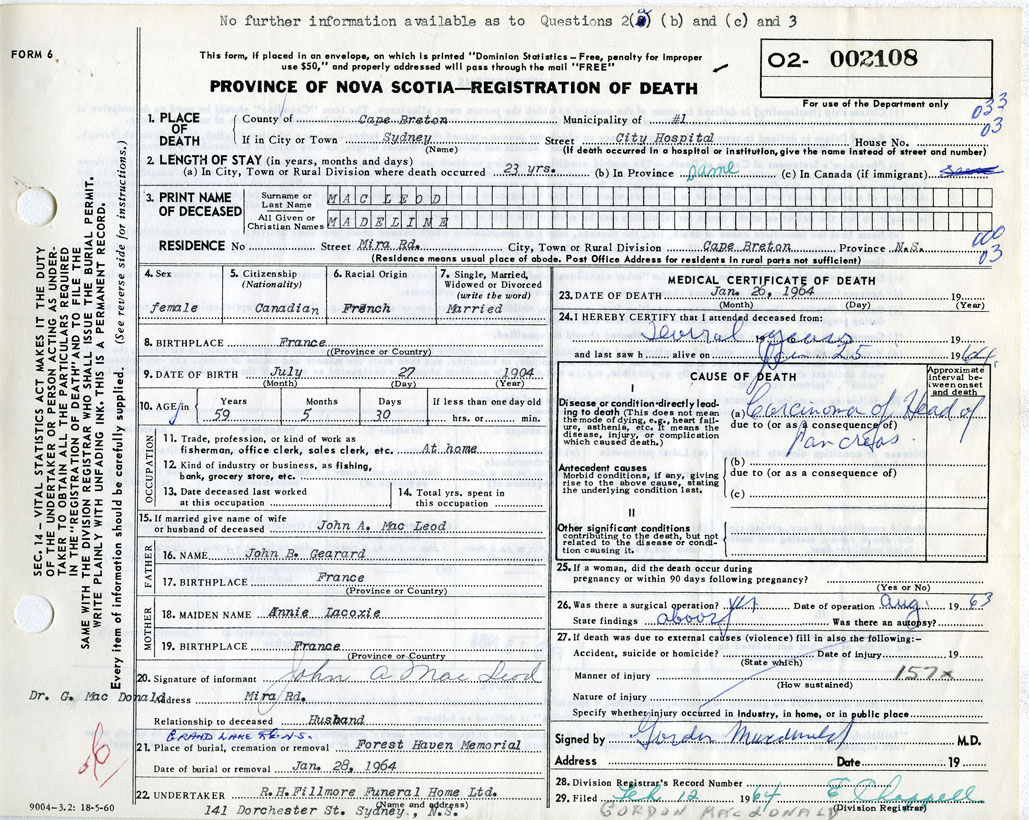 No further information available as to Questions 2(a) (b) and (c) and 3
FORM 6
This form, if placed in an envelope, on which is printed "Dominion Statistics – Free, penalty for improper
use $50," and properly addressed will pass through the mail "FREE"
O2- 002108
PROVINCE OF NOVA SCOTIA—REGISTRATION OF DEATH
For use of the Department only
033
03
1. PLACE OF DEATH
County of Cape Breton Municipality of #1
If in City or Town Sydney Street City Hospital House No.
(Name) (If death occurred in a hospital or institution, give the name instead of street and number)
2. LENGTH OF STAY (in years, months and days)
(a) In City, Town or Rural Division where death occurred 23 yrs. (b) In Province same (c) In Canada (if immigrant)
3. PRINT NAME OF DECEASED
Surname or Last Name MAC LEOD
All Given or Christian Names MADELINE
000
03
RESIDENCE No Street Mira Rd. City, Town or Rural Division Cape Breton Province N.S.
(Residence means usual place of abode. Post Office Address for residents in rural parts not sufficient)
4. Sex
female
5. Citizenship
(Nationality)
Canadian
6. Racial Origin
French
7. Single, Married,
Widowed or Divorced
(write the word)
Married
8. BIRTHPLACE France
(Province or Country)
9. DATE OF BIRTH July 27 1904
(Month) (Day) (Year)
10. AGE in Years Months Days If less than one day old
59 5 30 hrs. or min.
OCCUPATION
11. Trade, profession, or kind of work as
fisherman, office clerk, sales clerk, etc. At home
12. Kind of industry or business, as fishing,
bank, grocery store, etc.
13. Date deceased last worked
at this occupation
14. Total yrs. spent in
this occupation
15. If married give name of wife
or husband of deceased John A. Mac Leod
FATHER
16. NAME John B. Gearard
17. BIRTHPLACE France
(Province or Country)
MOTHER
18. MAIDEN NAME Annie Lacoxie
19. BIRTHPLACE France
(Province or Country
20. Signature of informant John A Mac Leod
Dr. G. Mac Donald
Address Mira Rd.
Relationship to deceased Husband
GRAND LAKE Rd N.S.
21. Place of burial, cremation or removal Forest Haven Memorial
Date of burial or removal Jan. 28, 1964
22. UNDERTAKER R.H.Fillmore Funeral Home Ltd.
(Name and address)
141 Dorchester St. Sydney, N.S.
9004–3.2: 18-5-60
MEDICAL CERTIFICATE OF DEATH
23. DATE OF DEATH Jan. 26, 1964 19
(Month) (Day) (Year)
24. I HEREBY CERTIFY that I attended deceased from:
Several years 19
and last saw h alive on Jan 25 1964
CAUSE OF DEATH
Approximate interval between onset and death
I
Disease or condition directly leading to death (This does not
mean the mode of dying, e.g., heart failure,
asthenia, etc. It means the
disease, injury, or complication
which caused death.)
(a) Carcinoma of Head of
due to (or as a consequence of)
Pancreas.
Antecedent causes
Morbid conditions, if any, giving
rise to the above cause, stating
the underlying condition last.
(b)
due to (or as a consequence of)
(c)
II
Other significant conditions
contributing to the death, but not
related to the disease or condition
causing it.
25. If a woman, did the death occur during
pregnancy or within 90 days following pregnancy?
(Yes or No)
26. Was there a surgical operation? yes Date of operation Aug. 1963
State findings above Was there an autopsy?
27. If death was due to external causes (violence) fill in also the following:–
Accident, suicide or homicide? Date of injury 19
(State which)
Manner of injury 157x
(How sustained)
Nature of injury
Specify whether injury occurred in industry, in home, or in public place
Signed by Gordon Macdonald M.D.
Address Date 19
28. Division Registrar's Record Number
29. Filed Feb 12 1964 E Chappell
(Division Registrar)
GORDON MACDONALD
SEC. 14 – VITAL STATISTICS ACT MAKES IT THE DUTY
OF THE UNDERTAKER OR PERSON ACTING AS UNDER-
TAKER TO OBTAIN ALL THE PARTICULARS REQUIRED
IN THE "REGISTRATION OF DEATH" AND TO FILE THE
SAME WITH THE DIVISION REGISTRAR WHO SHALL ISSUE THE BURIAL PERMIT.
WRITE PLAINLY WITH UNFADING INK. THIS IS A PERMANENT RECORD.
Every item of information should be carefully supplied. (See reverse side for instructions.)